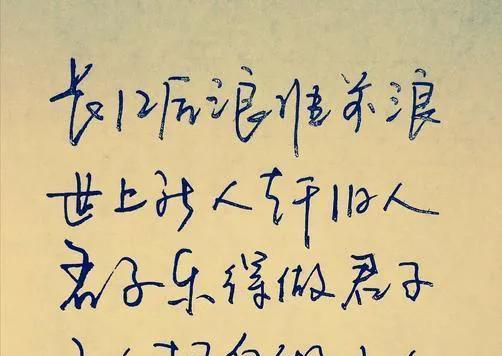 长江后浪推前浪
世上新人赶旧人
君子乐得做君子